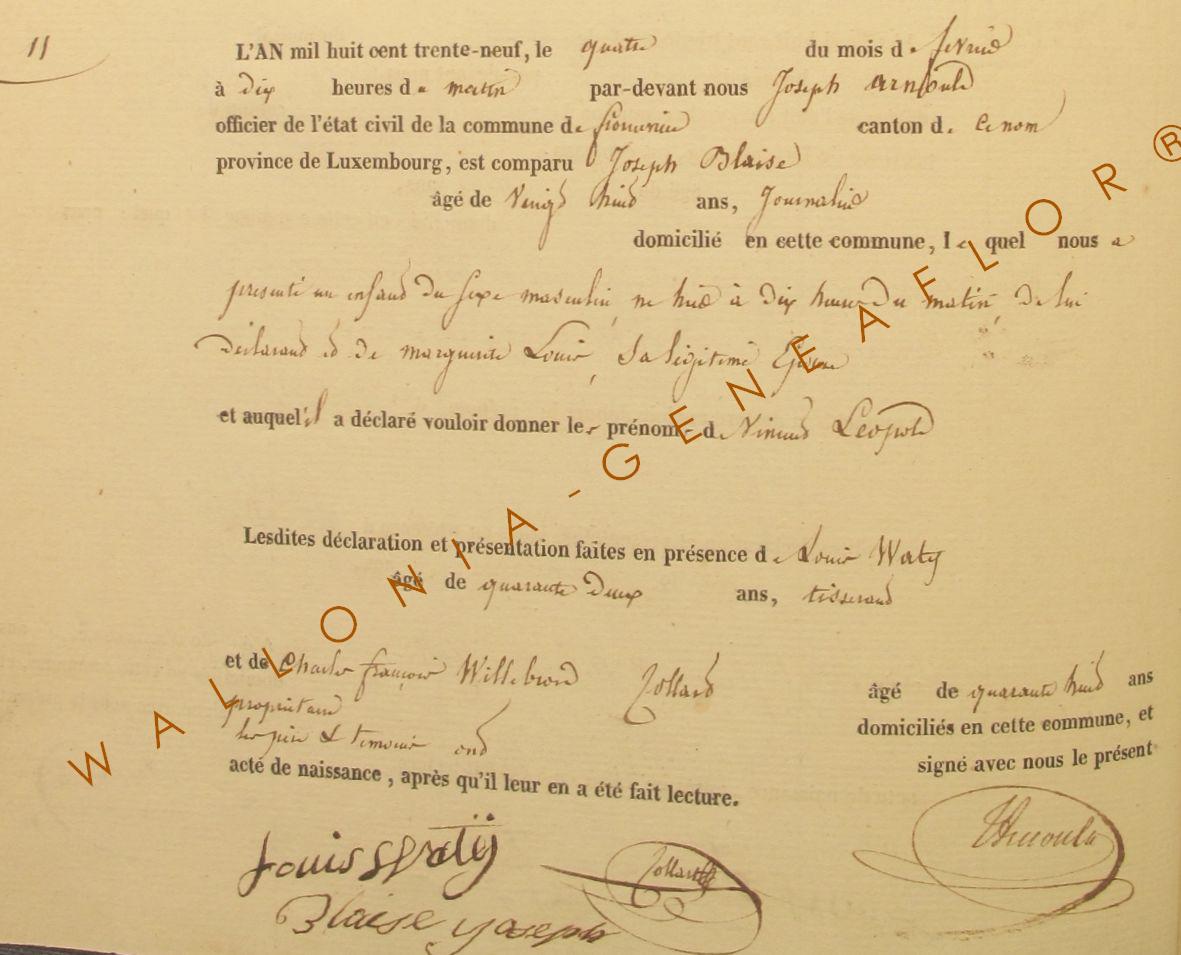 11
L'AN mil huit cent trente-neuf, le quatre du mois de fevrier
à dix heures du matin par-devant nous Joseph Arnould
officier de l'état civil de la commune de canton de
province de Luxembourg, est comparu Joseph Blaise
âgé de vingt huit ans, Journalier
domicilié en cette commune, lequel nous a
presenté un enfant du sexe masculin, né à dix heures du matin, de lui
declarant et de marguerite Louis, Sa légitime Epouse
et auquel il a déclaré vouloir donner les prénoms de Vincent Leopold
Lesdites déclaration et présentation faites en présence de Louis Waty
âgé de quarante deux ans, tisserand
et de Charles françois Willebrord Collard âgé de quarante huit ans
propriétaire domiciliés en cette commune, et
les père & temoins ont signé avec nous le présent
acte de naissance, après qu'il leur en a été fait lecture.
Louis Watÿ Collard Arnould
Blaise Joseph
WALLONIA-GENEAFLOR®